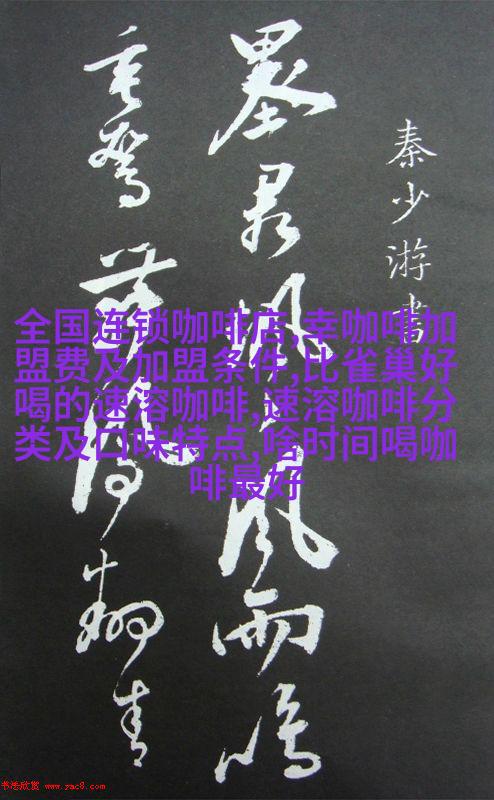 秦少游書
墨君颯風雨鳴
舞鳳翻青
全国连锁咖啡店,幸咖啡加
盟费及加盟条件,比雀巢好
喝的速溶咖啡,速溶咖啡分
类及口味特点,啥时间喝咖
啡最好
书法欣赏 www.yac8.com